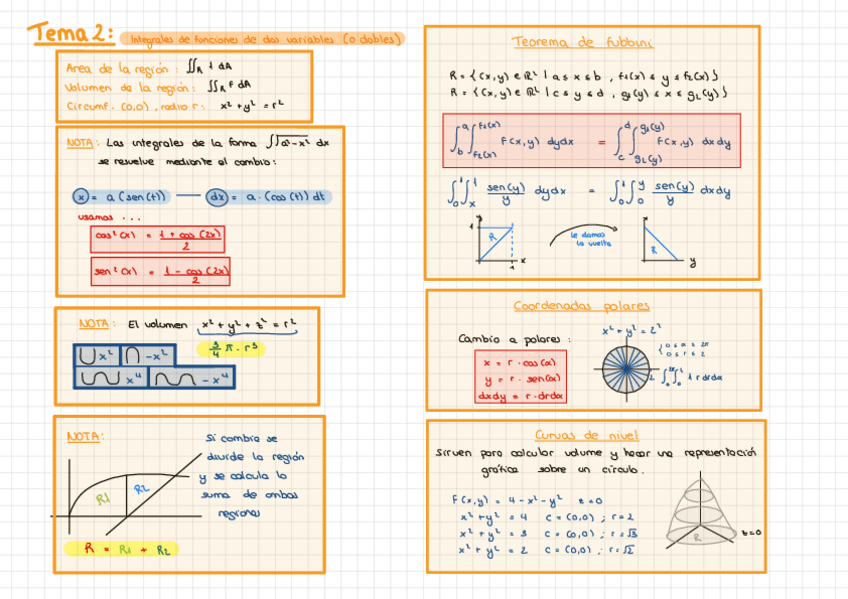 Tema 2: Integrales de funciones de dos variables (o dobles)
Area de la región : ∬R 1 dA
Volumen de la región : ∬R F dA
Circumf. (0,0), radio r : x² + y² = r²
NOTA: Las integrales de la forma ∫√a²-x² dx
se resuelve mediante el cambio:
x = a (sen(t)) — dx = a · (cos(t)) dt
usamos ...
cos²(x) = 1 + cos(2x) / 2
sen²(x) = 1 - cos(2x) / 2
NOTA: El volumen x² + y² + z² = r²
3/4 π · r³
x² -x²
x⁴ -x⁴
NOTA:
Si cambia se
divide la región
y se calcula la
suma de ambas
regiones
R1 R2
R = R1 + R2
Teorema de fubbini
R = {(x,y) ∈ ℝ² | a ≤ x ≤ b , f1(x) ≤ y ≤ f2(x)}
R = {(x,y) ∈ ℝ² | c ≤ y ≤ d , g1(y) ≤ x ≤ g2(y)}
∫ab ∫f1(x)f2(x) F(x,y) dydx = ∫cd ∫g2(y)g1(y) F(x,y) dxdy
∫01 ∫x1 sen(y)/y dydx = ∫01 ∫0y sen(y)/y dxdy
y 1 R 1 x
le damos
la vuelta
x R y
Coordenadas polares
Cambio a polares :
x = r · cos(α)
y = r · sen(α)
dxdy = r · drdα
x² + y² = 2²
{ 0 ≤ α ≤ 2π
0 ≤ r ≤ 2
2 ∫02π ∫02 1 r drdα
Curvas de nivel
Sirven para calcular volume y hacer una representación
gráfica sobre un círculo.
F(x,y) = 4 - x² - y² z=0
x² + y² = 4 C = (0,0) ; r = 2
x² + y² = 3 C = (0,0) ; r = √3
x² + y² = 2 C = (0,0) ; r = √2
R z=0